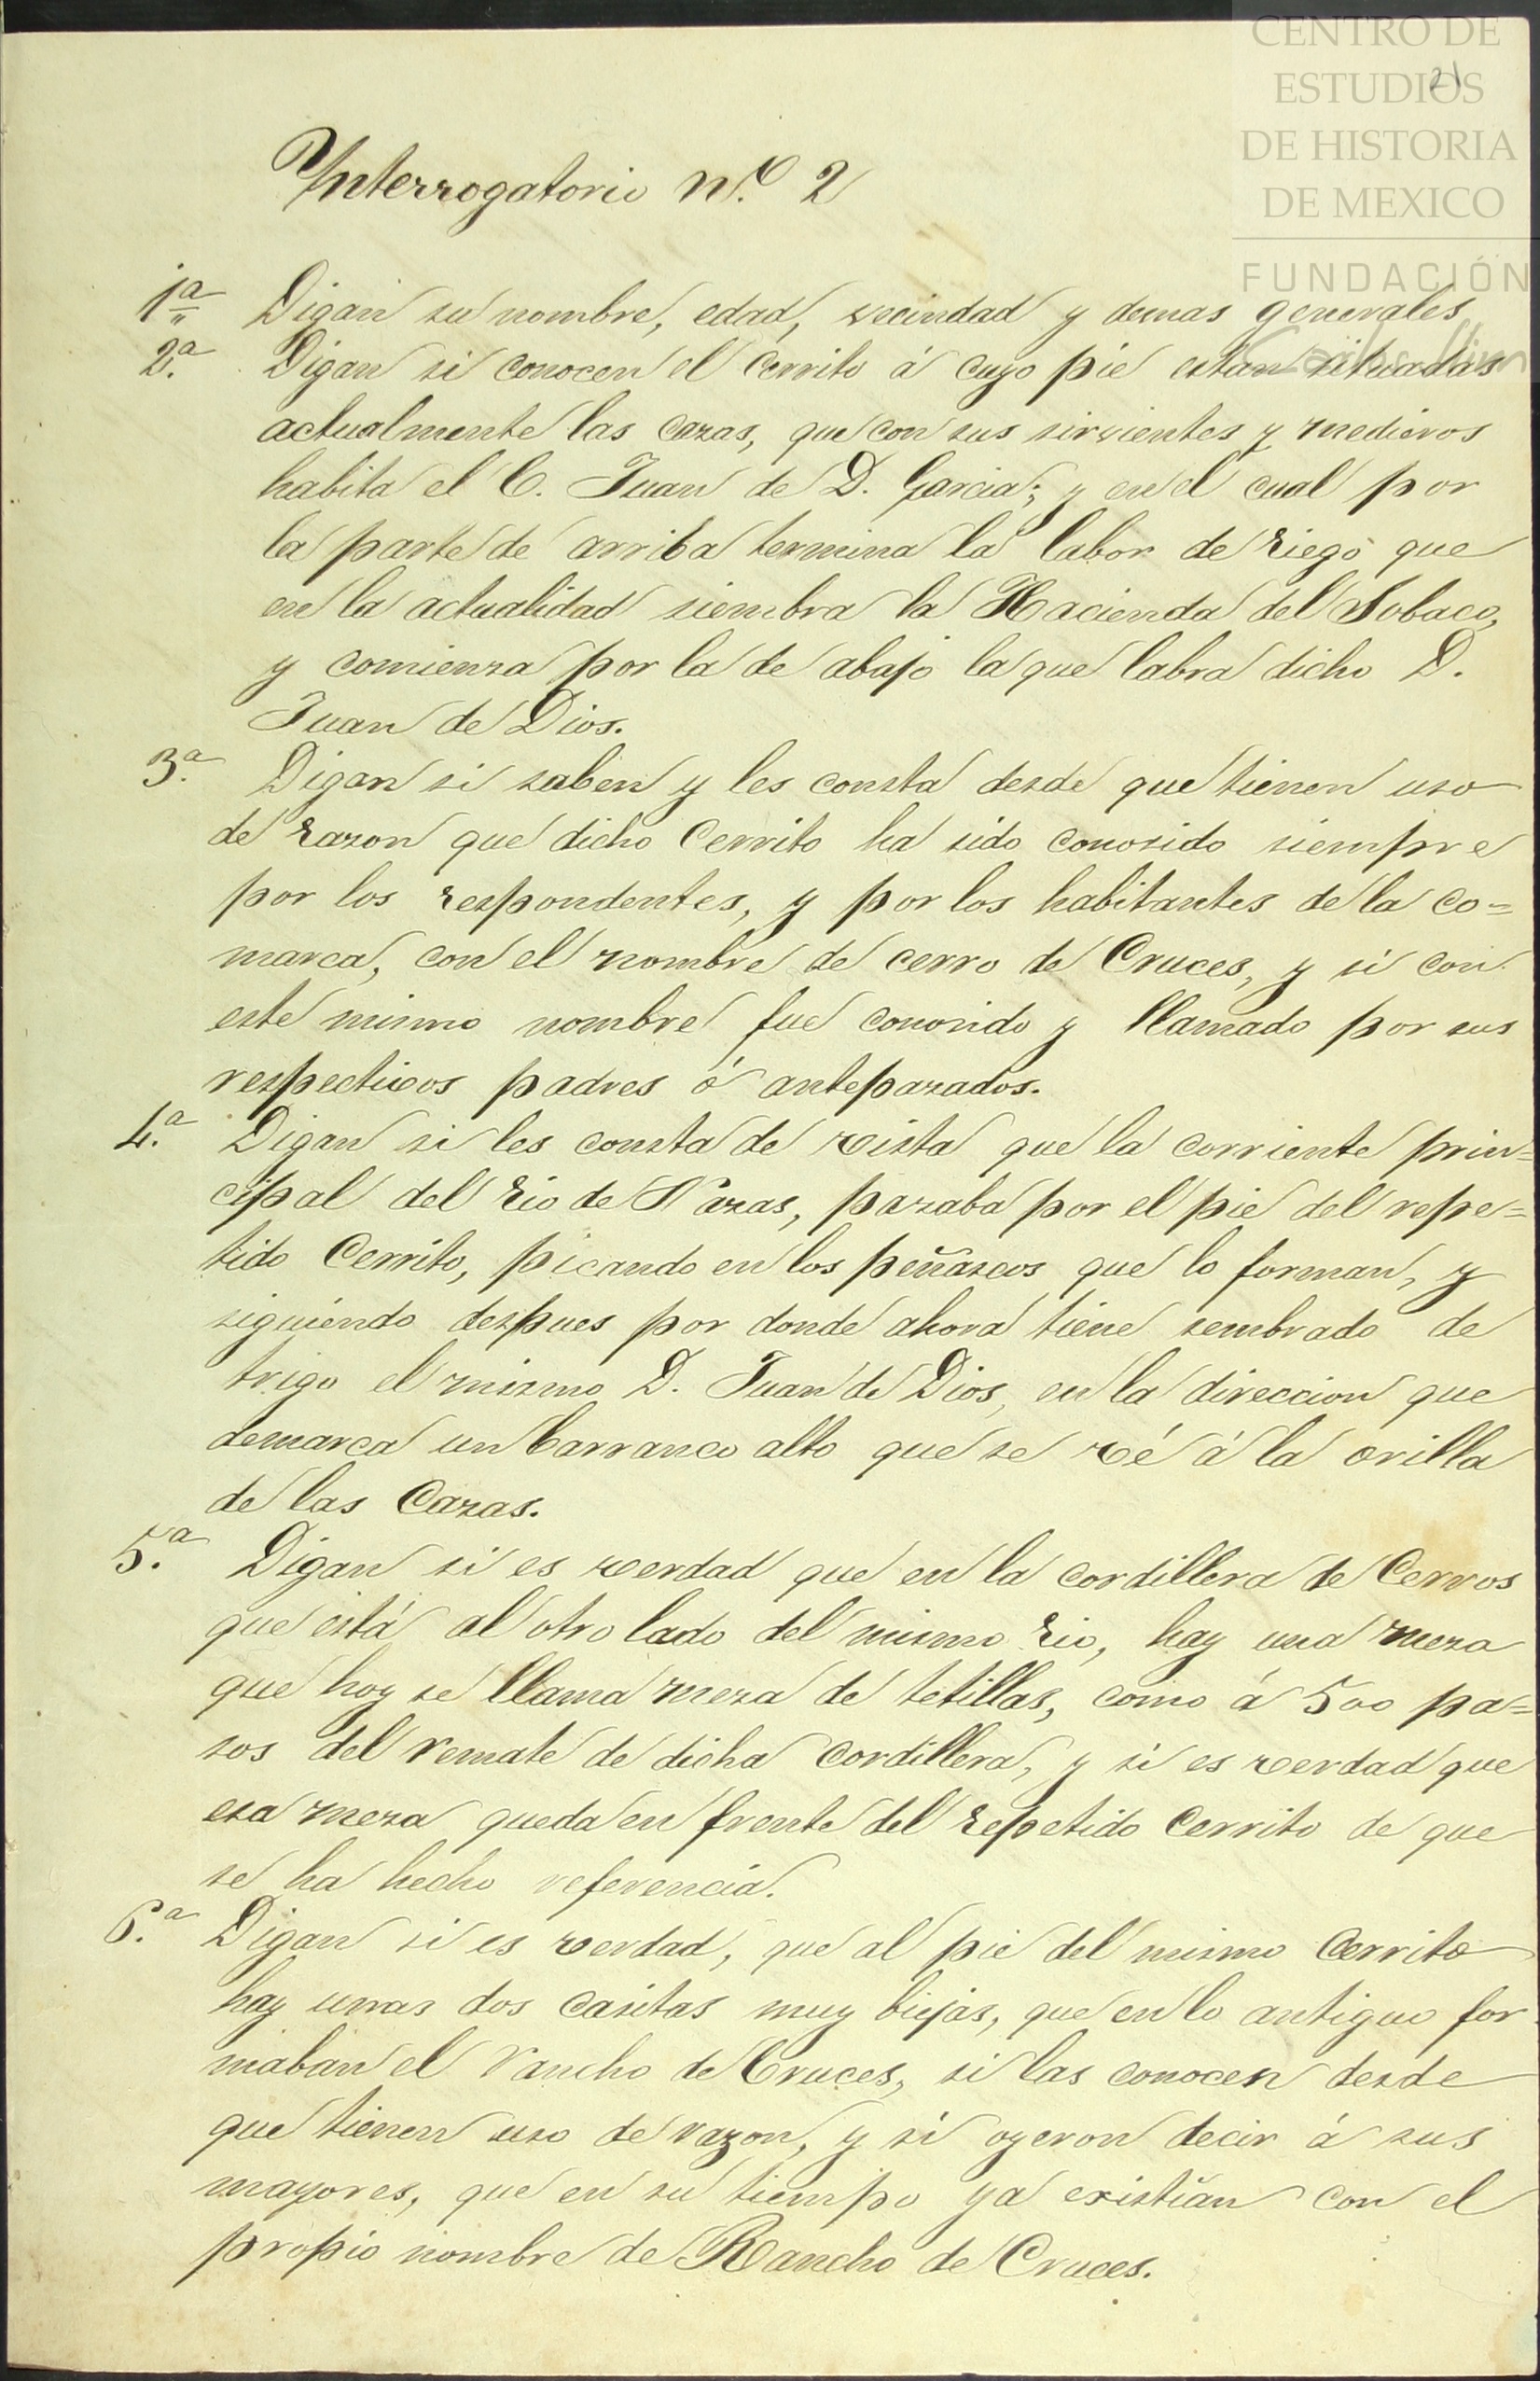 CENTRO DE
ESTUDIOS
DE HISTORIA
DE MEXICO
FUNDACIÓN
21
Interrogatorio n.º 2
1ª Digan su nombre, edad, vecindad y demas generales
2.ª Digan si conocen el Cerrito á cuyo pié estan situadas
actualmente las cazas, que con sus sirvientes y medieros
habita el C. Juan de D. Garcia; y en el cual por
la parte de arriba termina la labor de riego que
en la actualidad siembra la Hacienda del Sobaco,
y comienza por la de abajo la que labra dicho D.
Juan de Dios.
3.ª Digan si saben y les consta desde que tienen uso
de razon que dicho Cerrito ha sido conosido siempre
por los respondentes, y por los habitantes de la co=
marca, con el nombre de cerro de Cruces, y si con
este mismo nombre fue conosido y llamado por sus
respectivos padres ó antepazados.
4.ª Digan si les consta de vista que la corriente prin=
cipal del rio de Nazas, pazaba por el pie del repe=
tido Cerrito, picando en los peñascos que lo forman, y
siguiendo despues por donde ahora tiene sembrado de
trigo el mismo D. Juan de Dios, en la direccion que
demarca un barranco alto que se vé á la orilla
de las Cazas.
5.ª Digan si es verdad que en la cordillera de Cerros
que está al otro lado del mismo rio, hay una meza
que hoy se llama meza de tetillas, como á 500 pa=
sos del remate de dicha Cordillera, y si es verdad que
esa meza queda en frente del repetido Cerrito de que
se ha hecho referencia.
6.ª Digan si es verdad, que al pie del mismo Cerrito
hay unas dos casitas muy biejas, que en lo antiguo for
maban el rancho de Cruces, si las conocen desde
que tienen uso de razon, y si oyeron decir á sus
mayores, que en su tiempo ya existian con el
propio nombre de Rancho de Cruces.